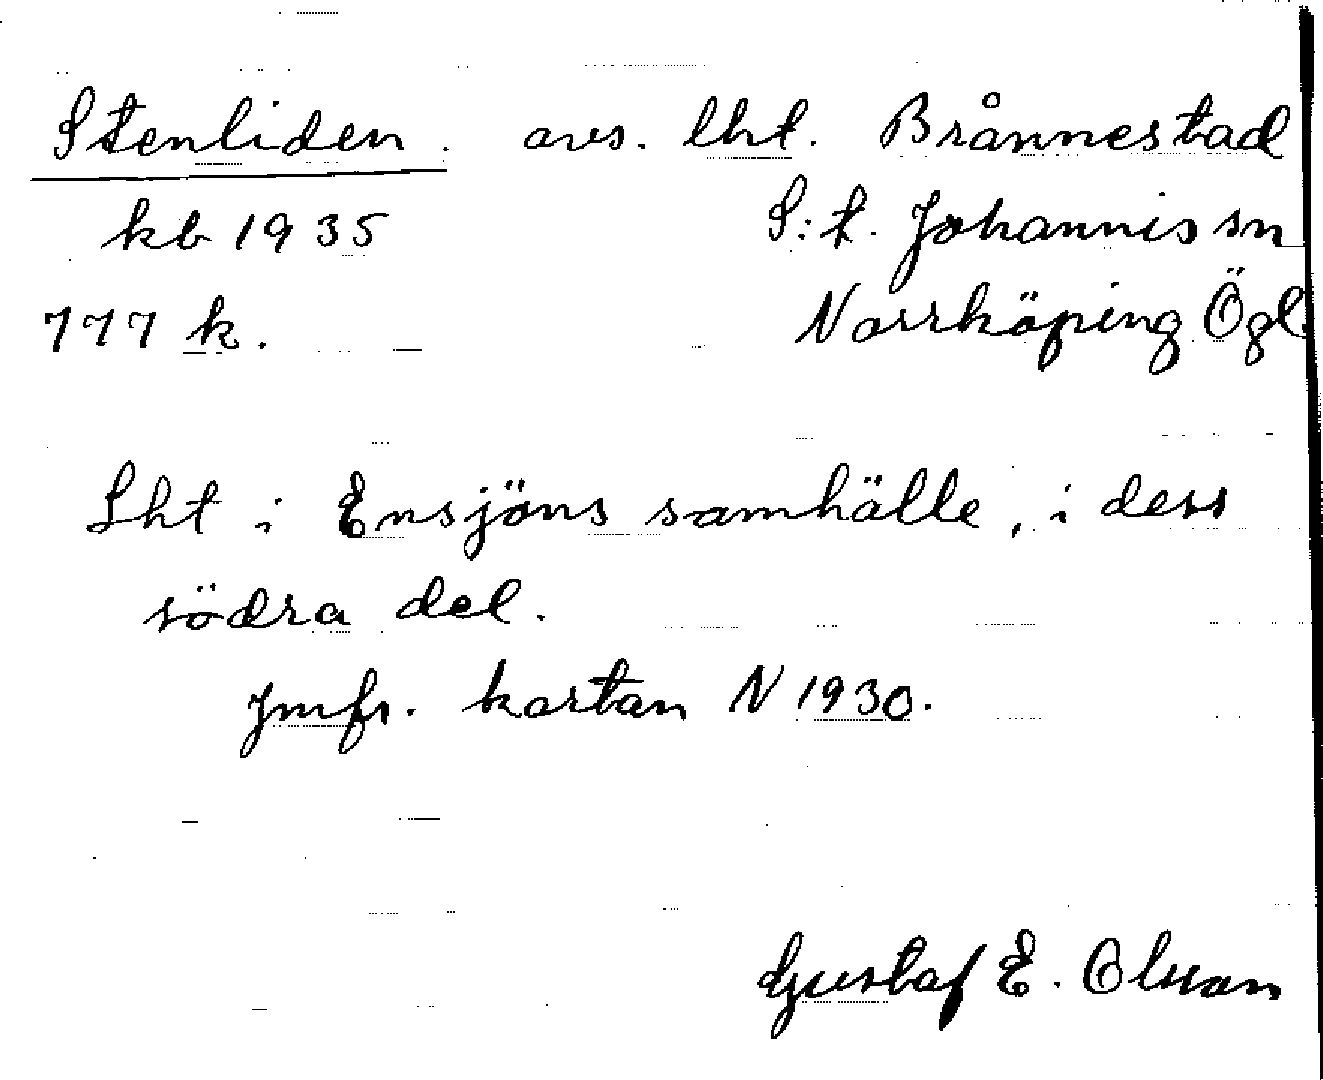 Stenliden. avs. lht. Brånnestad
kb 1935 S:t. Johannis sn
777 k. Norrköping Ögl.
Lht i Ensjöns samhälle, i dess
södra del.
Jmfr. kartan N 1930.
Gustaf E. Olsson